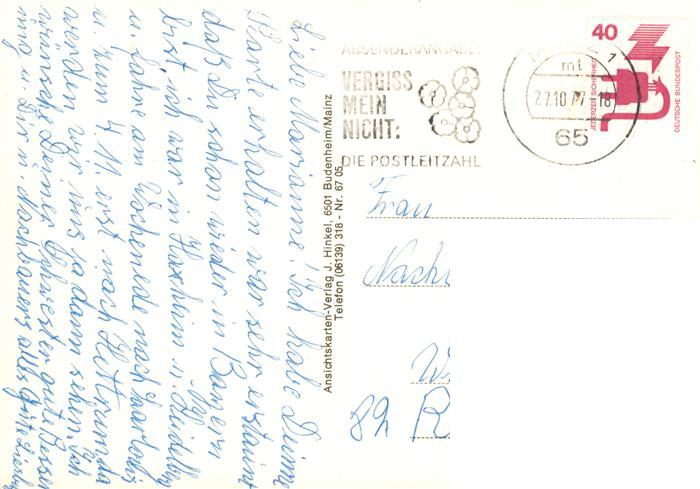 Liebe Marianne! Ich habe Deine
Karte erhalten war sehr erstaunt
daß Du schon wieder in Bayern
bist, ich war in Flaxheim u. Heidelbg
u. fahre am Wochenende nach
u. zum 1. M. erst nach
werden wir uns ja dann sehen. Ich
wünsche Deiner Schwester gute Besser
ung u. Dir u. Nachbauers alles Gute
Ansichtskarten-Verlag J. Hinkel, 6501 Budenheim/Mainz
Telefon (06139) 318 - Nr. 67 05
ABSENDERANGABE!
VERGISS
MEIN
NICHT:
DIE POSTLEITZAHL
mt 1
27.10.77-18
65
40
JEDERZEIT SICHERHEIT
DEUTSCHE BUNDESPOST
Frau
Nach
W
82 R